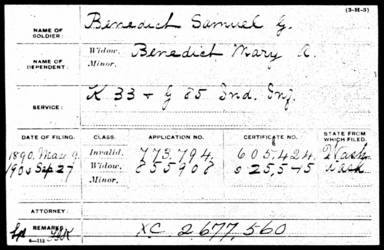 (3-H-3)
NAME OF SOLDIER: Benedict Samuel G.
NAME OF DEPENDENT: Widow, Benedict Mary A.
Minor,
SERVICE: K 33 + G 85 Ind. Inf.
DATE OF FILING. CLASS. APPLICATION NO. CERTIFICATE NO. STATE FROM WHICH FILED.
1890, May 9 Invalid, 773,794. 605,424 Wash
Sep 27 Widow, Wash
Minor,
ATTORNEY:
REMARKS: XC 2677,560